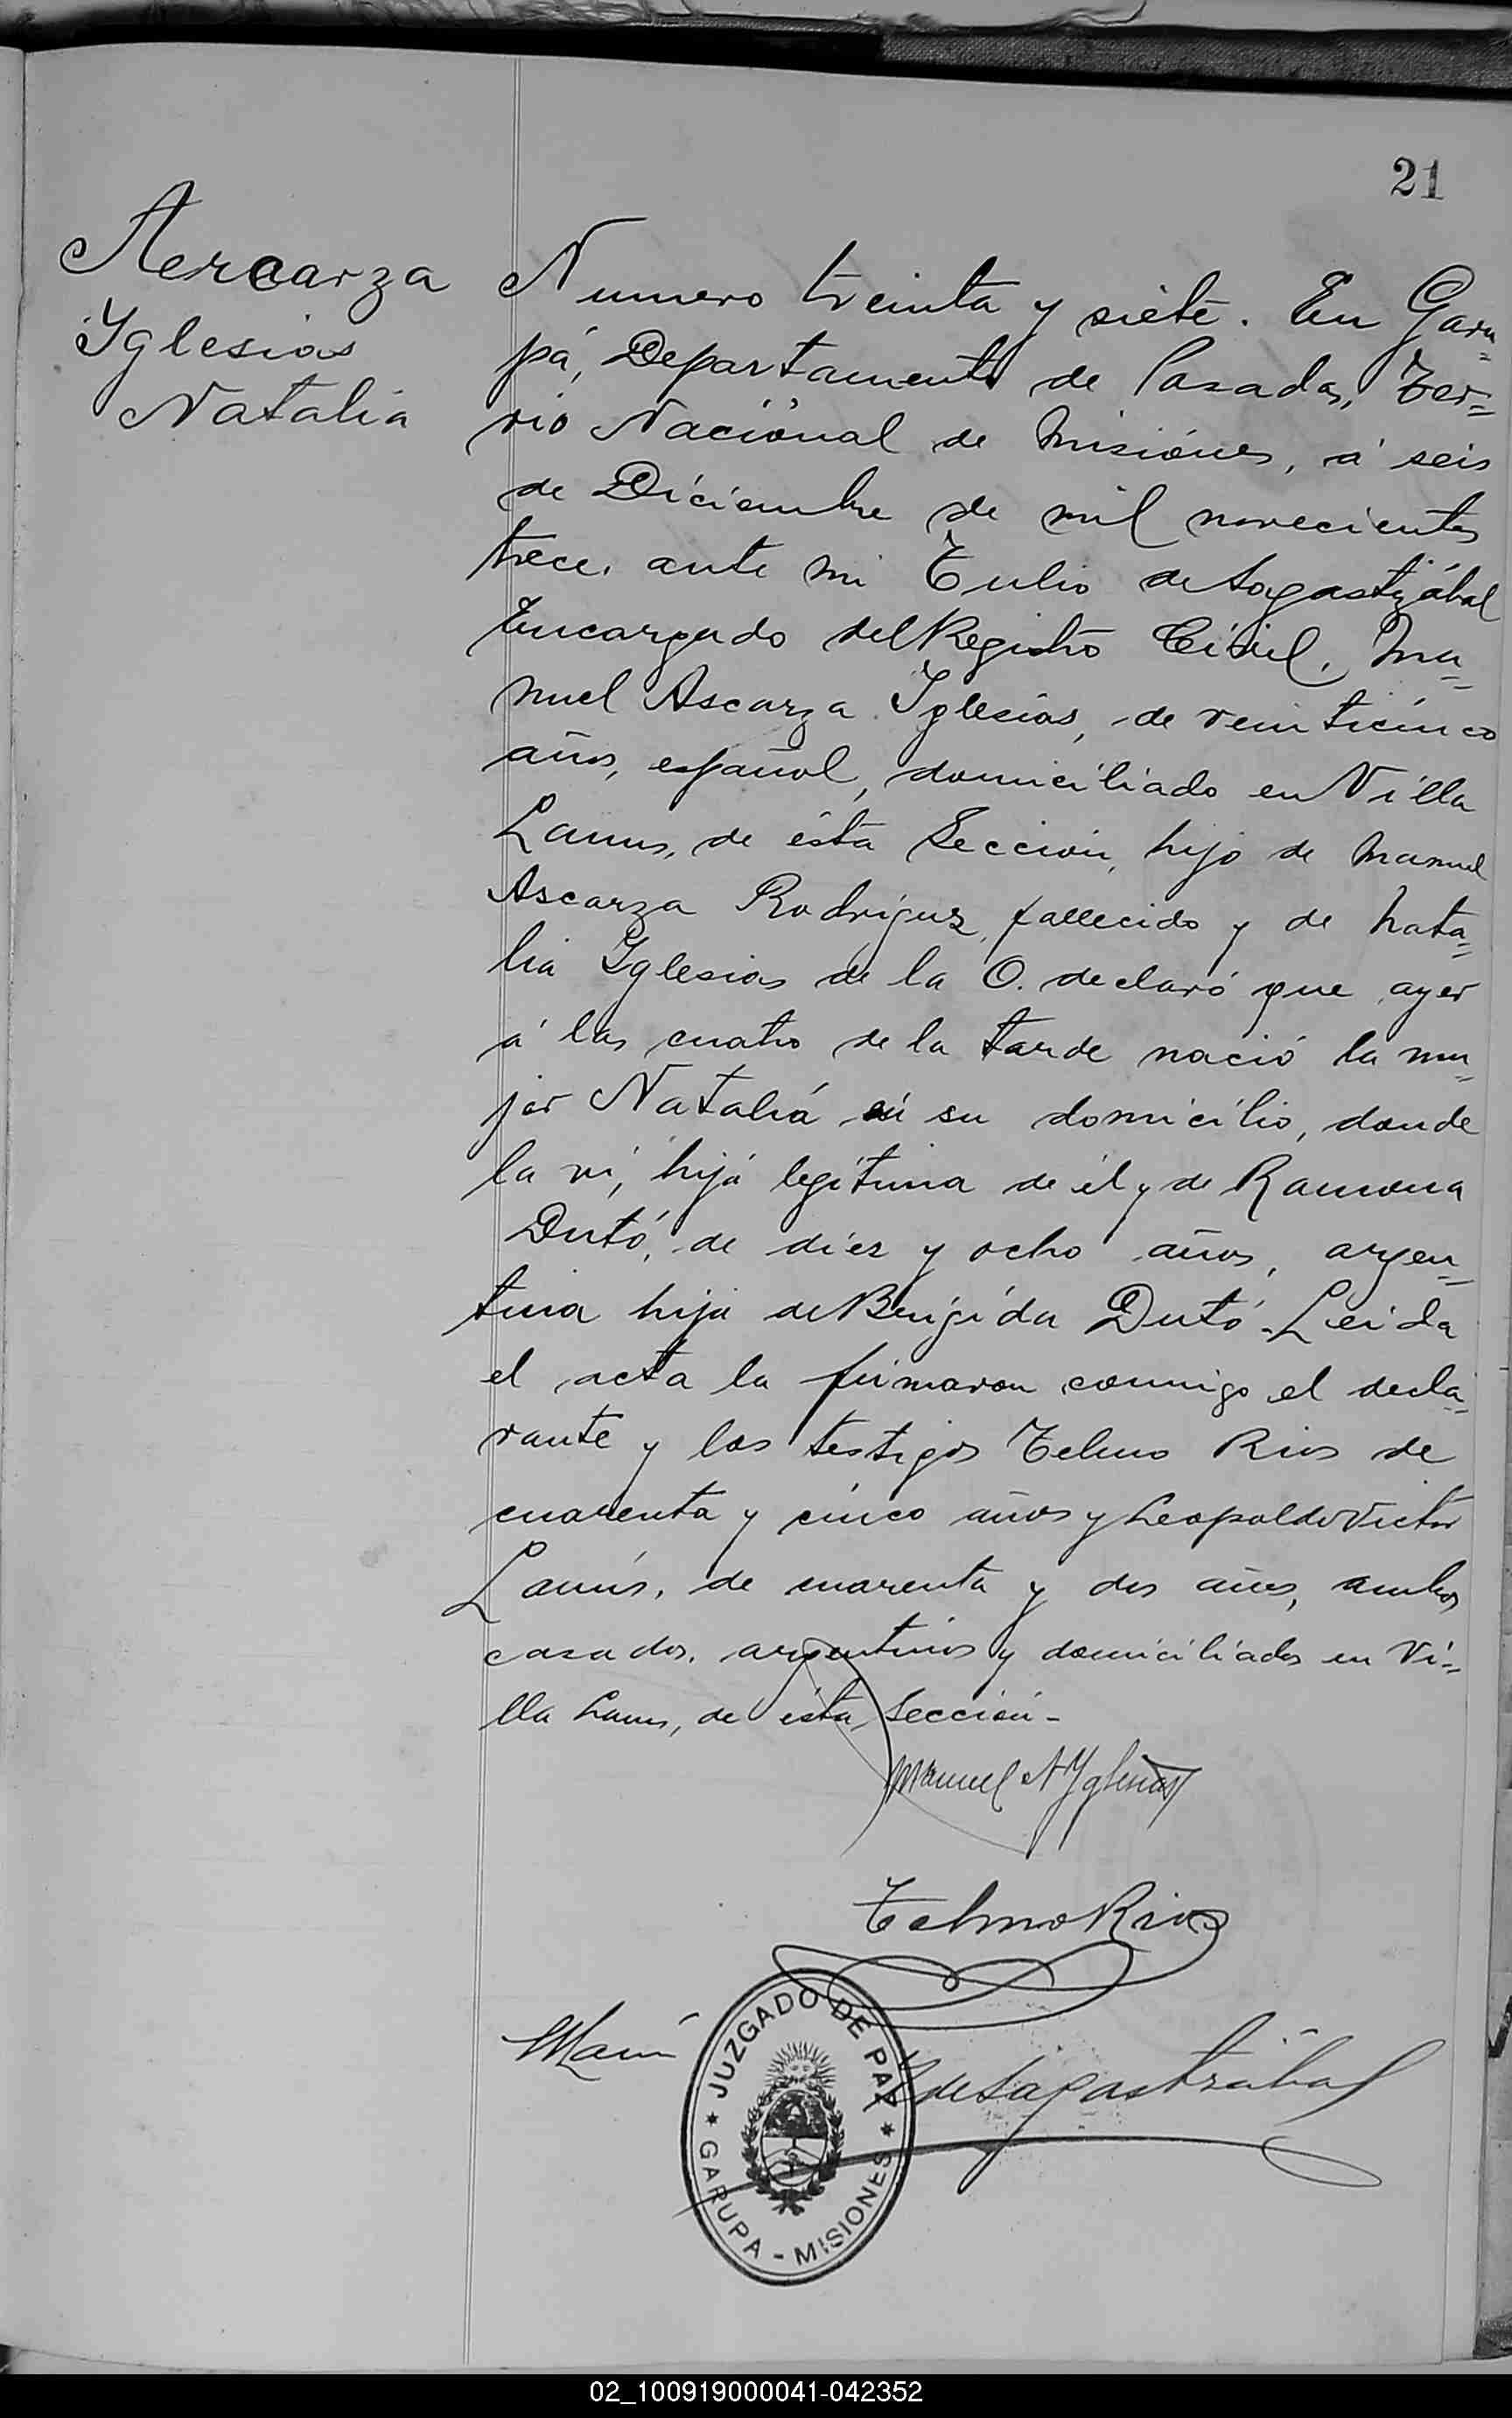 21
Aercarza
Yglesias
Natalia
Numero treinta y siete. En Garu=
pá, Departamento de Posadas, Ter=
rio Nacional de Misiónes, á seis
de Diciembre de mil novecientos
trece, ante mi Tulio de Sagastizábal
Encargado del Registro Civil, Ma=
nuel Ascarza Yglesias, de veinticinco
años, español, domiciliado en Villa
Lanus, de ésta Sección, hijo de Manuel
Ascarza Rodriguez, fallecido y de Nata=
lia Yglesias de la O. declaró que ayer
á las cuatro de la tarde nació la mu=
jer Natalia en su domicilio, donde
la ví, hija legítima de él y de Ramona
Dutó, de diez y ocho años, argen=
tina hija de Brígida Dutó. Leida
el acta la firmaron conmigo el decla=
rante y los testigos Telmo Rios de
cuarenta y cinco años y Leopoldo Victor
Lanús, de cuarenta y dos años, ambos
casados, argentinos y domiciliados en Vi=
lla Lanus, de ésta Sección-
Manuel A Yglesias
Telmo Rios
T de Sagastizábal
JUZGADO DE PAZ
* GARUPA - MISIONES *
02_100919000041-042352